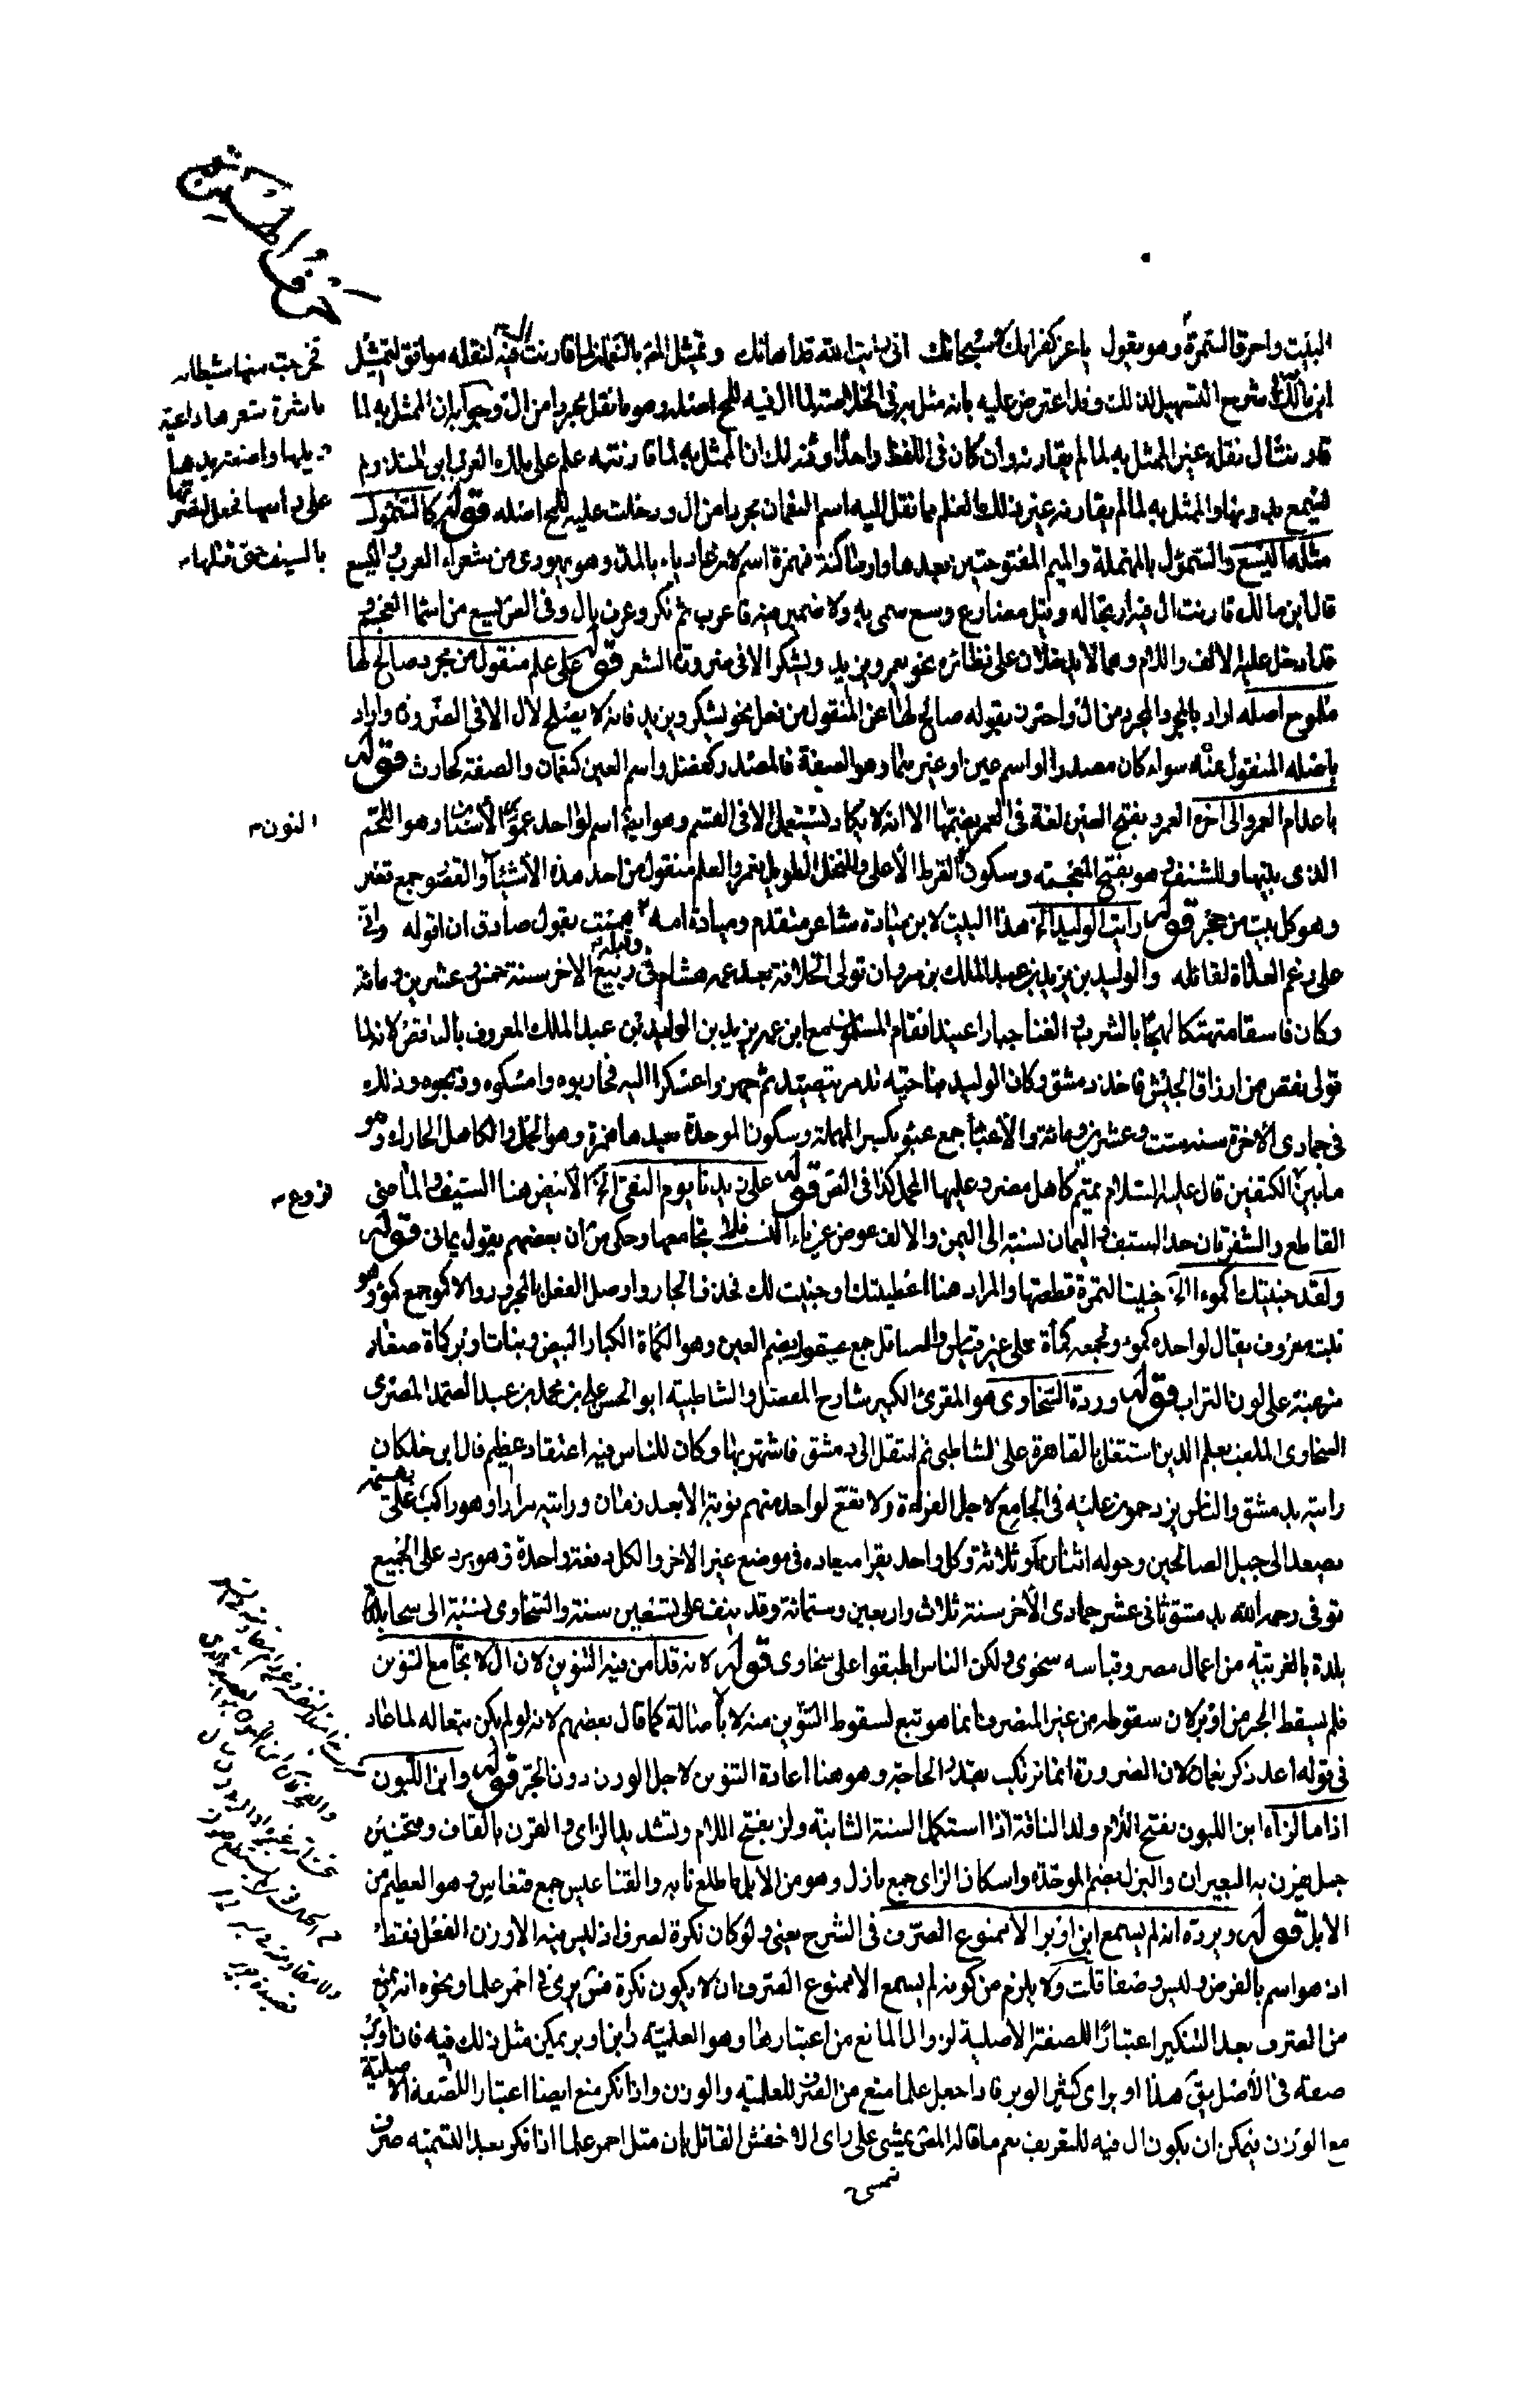 البيت واحرق السمرة وهو يقول يا عز كفرانك لا سبحانك انى رايت الله قد اهانك وتمثيل المص بالنعمان لما قارنت ال فيه لنقله موافق لتمثيل
ابن مالك فى شرح التسهيل لذلك وقد اعترض عليه بانه مثل به فى الخلاصة لما ال فيه للمح اصله وهو ما نقل مجردا من ال وجوابه ان الممثل به لما
قارنت ال نقله غير الممثل به لما لم يقارنه وان كان فى اللفظ واحدا وذلك ان الممثل به لما قارنته علم على ملك العرب ابى المنذر ولم
يسمع بدونها والممثل به لما لم يقارنه غير ذلك العلم مما نقل اليه اسم النعمان مجردا من ال ودخلت عليه للمح اصله قوله كالسموأل
مثله اليسع والسموأل بالمهملة والميم المفتوحتين بعدها واو ساكنة فهمزة اسم لابن عادياء بالمد وهو يهودى من شعراء العرب واليسع
قال ابن مالك قارنت ال فيه ارتجاله وقيل مضارع وسع سمى به ولا ضمير فيه فاعرب ثم نكر وعرف بال وفى الص اليسع من اسماء العجم و
قد ادخل عليه الالف واللام وهما لا يدخلان على نظائره نحو يعمر ويزيد ويشكر الا فى ضرورة الشعر قوله على علم منقول من مجرد صالح لها
ملموح اصله اراد بالمجرد المجرد من ال واحترز بقوله صالح لها عن المنقول من فعل نحو يشكر ويزيد فانه لا يصلح لال الا فى الضرورة واراد
باصله المنقول عنه سواء كان مصدرا او اسم عين او غيرهما وهو الصفة فالمصدر كفضل واسم العين كنعمان والصفة كحارث قوله
باعد ام العمرو الى اخره العمرو بفتح العين لغة فى العمر بضمها الا انه لا يكاد يستعمل الا فى القسم وهو ايضا اسم لواحد عمور الاسنان وهو اللحم
الذى بينها وللشنف وهو بفتح المعجمة وسكون القرط الاعلى وللنخل الطويل بعمرو العلم منقول من احد هذه الاشياء والقصور جمع قصر
وهو كل بيت من حجر قوله رايت الوليد الخ هذا البيت لابن ميادة شاعر متقدم وميادة امه وقبله هممت بقول صادق ان اقوله وانى
على رغم العداة لقائله والوليد بن يزيد بن عبد الملك بن مروان تولى الخلافة بعد عمه هشام فى ربيع الاخر سنة خمس وعشرين ومائة
وكان فاسقا متهتكا لهجا بالشرب والغنا جبارا عنيدا فقام المسلمون مع ابن عمه يزيد بن الوليد بن عبد الملك المعروف بالناقص لانه لما
تولى نقص من ارزاق الجيش فاخذ دمشق وكان الوليد بناحية تدمر يتصيد ثم جهز واعسكرا اليه فحاربوه وامسكوه وذبحوه وذلك
فى جمادى الاخرة سنة ست وعشرين ومائة والاعباء جمع عبؤ بكسر المهملة وسكون الموحدة بعدها همزة وهو الحمل والكاهل الحارك وهو
ما بين الكتفين قال عليه السلام تميم كاهل مضر وعليها المحمل كذا فى الص قوله على زيدنا يوم النقى الخ الابيض هنا السيف والماضى
القاطع والشفرتان حد السيف واليمان نسبة الى اليمن والالف عوض عن ياء النسب فلا يجامعها وحكى س ان بعضهم يقول يمانى قوله
ولقد جنيتك اكموءا الخ جنيت الثمرة قطعتها والمراد هنا اعطيتك او جنيت لك فحذف الجار واوصل الفعل بالمجرور والاكمؤ جمع كمؤ وهو
نبت معروف يقال لواحده كمؤ ولجمعه كمأة على غير قياس والعساقل جمع عسقول بضم العين وهو الكمأة الكبار البيض وبنات اوبر كمأة صغار
مزغبة على لون التراب قوله ورده السخاوى هو المقرئ الكبير شارح المفصل والشاطبية ابو الحسن على بن محمد بن عبد الصمد المصرى
السخاوى الملقب بعلم الدين استغل بالقاهرة على الشاطبى ثم انتقل الى دمشق فاشتهر بها وكان للناس فيه اعتقاد عظيم قال ابن خلكان
رايته بدمشق والناس يزدحمون عليه فى الجامع لاجل القراءة ولا تقع لواحد منهم نوبة الا بعد زمان ورايته مرارا وهو راكب على بهيمة
يصعد الى جبل الصالحين وحوله اثنان او ثلاثة وكل واحد يقرا ميعاده فى موضع غير الاخر والكل دفعة واحدة وهو يرد على الجميع
توفى رحمه الله بدمشق ثانى عشر جمادى الاخر سنة ثلاث واربعين وستمائة وقد نيف على تسعين سنة والسخاوى نسبة الى سخا
بلدة بالغربية من اعمال مصر وقياسه سخوى ولكن الناس اطبقوا على سخاوى قوله لانه قد امن فيه التنوين لان ال لا يجامع التنوين
فلم يسقط الجر من اوبر لان سقوطه من غير المنصرف انما هو تبع لسقوط التنوين منه لا بأصالة كما قال بعضهم لانه لو لم يكن تبعا له لما عاد
فى قوله اعد ذكر نعمان لان الضرورة انما ترتكب بقدر الحاجة وهو هنا اعادة التنوين لاجل الوزن دون الجر قوله وابن اللبون
اذا ما لز الخ ابن اللبون بفتح اللام ولد الناقة اذا استكمل السنة الثانية ولز بفتح اللام وتشديد الزاى والقرن بالقاف وفتحتين
حبل يقرن به البعيران والبزل بضم الموحدة واسكان الزاى جمع بازل وهو من الابل ما طلع نابه والقناعيس جمع قنعاس وهو العظيم من
الابل قوله ويرده انه لم يسمع ابن اوبر الا ممنوع الصرف فى الشرح يعنى ولو كان نكرة لصرف اذ ليس فيه الا وزن الفعل فقط
اذ هو اسم بالفرض وليس وصفا قلت ولا يلزم من كونه لم يسمع الا ممنوع الصرف ان لا يكون نكرة فس يرى فى احمر علما ونحوه انه يمنع
من الصرف بعد التنكير اعتبارا للصفة الاصلية لزوال المانع من اعتبارها وهو العلمية وابن اوبر يمكن مثل ذلك فيه فان اوبر
صفة فى الاصل يق هذا اوبر اى كثير الوبر فاذا جعل علما منع من الصرف للعلمية والوزن واذا نكر منع ايضا اعتبارا للصفة الاصلية
مع الوزن فيمكن ان يكون ال فيه للتعريف نعم ما قاله المص يمشى على راى الاخفش القائل بان مثل احمر علما اذا نكر بعد التسمية صرف
فخرجت منها شيطانة
ناشرة شعرها داعية
ويلها واضعة يدها
على راسها فجعل يضربها
بالسيف حتى قتلها
النون